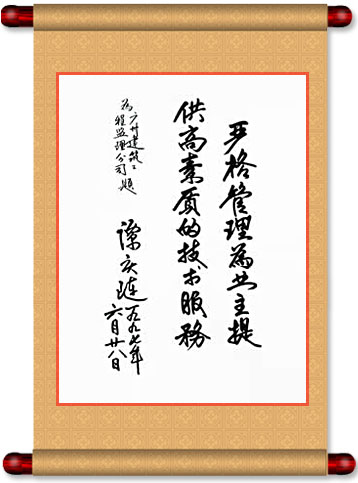 严格管理為业主提
供高素质的技术服務
為广州建筑工
程监理公司题
谭庆琏
一九九七年
六月廿八日